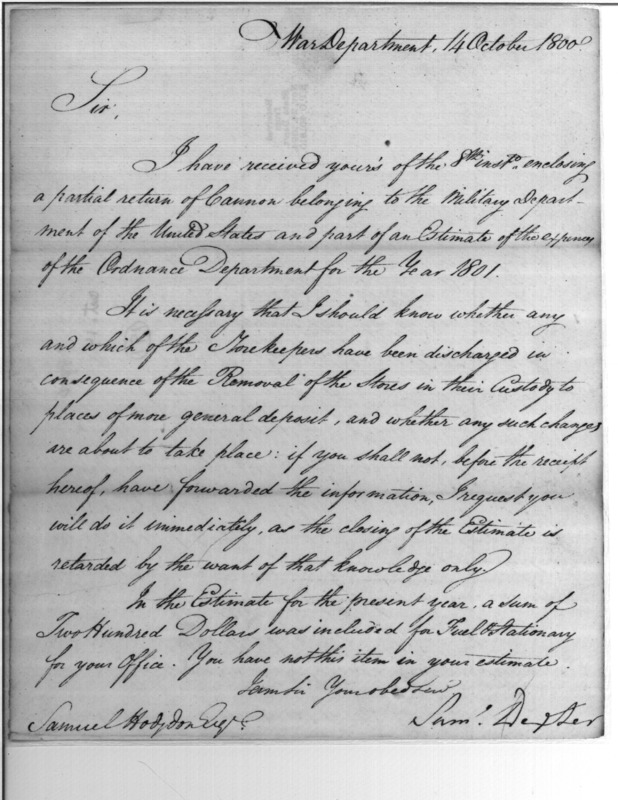 War Department, 14 October 1800.
Sir,
I have received your's of the 8th insto. enclosing
a partial return of Cannon belonging to the Military Depart-
ment of the United States and part of an Estimate of the expences
of the Ordnance Department for the Year 1801.
It is necessary that I should know whether any
and which of the Storekeepers have been discharged in
consequence of the Removal of the Stores in their Custody to
places of more general deposit, and whether any such changes
are about to take place: if you shall not, before the receipt
hereof, have forwarded the information, I request you
will do it immediately, as the closing of the Estimate is
retarded by the want of that knowledge only.
In the Estimate for the present year, a sum of
Two Hundred Dollars was included for Fuel & Stationary
for your Office. You have not this item in your estimate.
I am Sir Your obed Serv
Samuel Hodgdon Esqr.
Saml. Dexter